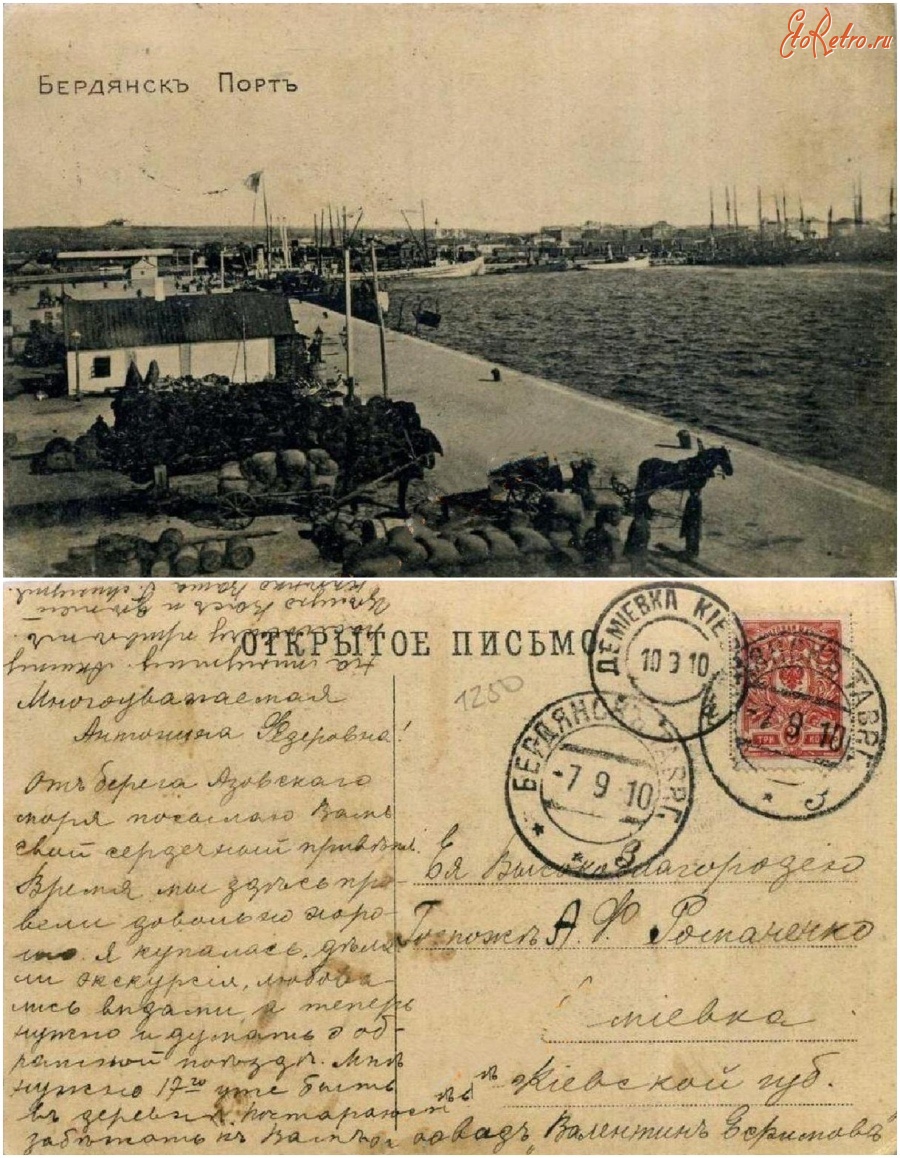 EtoRetro.ru
Бердянскъ Портъ
ОТКРЫТОЕ ПИСЬМО
1250
ДЕМІЕВКА КІЕВ
10 9 10
БЕРДЯНСКЪ ТАВРГ.
-7 9 10
3
ТАВРГ.
-7 9 10
3
ТРИ КОП
Многоуважаемая
Антонина Федоровна!
Отъ берега Азовскаго
моря посылаю Вамъ
свой сердечный привѣтъ.
Время мы здѣсь про-
вели довольно хоро-
шо. Я купалась, дѣла-
ли экскурсія, любова-
лись видами, а теперь
нужно и думать о об-
ратной поѣздкѣ. Мнѣ
нужно 17го уже быть
въ деревнѣ. Постараюсь
забѣжать къ Вамъ
Ея Высокоблагородію
Госпожѣ А. Ф. Романенко
Деміевка
Кіевской губ.
"Валентинъ Ефимовъ"